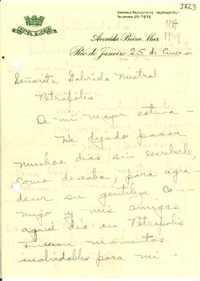 3823
HOTEL GLORIA
Avenida Beira Mar
Rio de Janeiro 25 de Enero
Señorita Gabriela Mistral
Petrópolis
A mi mayor estima -
He dejado pasar
muchos dias sin escribirle,
como deseaba, para agra-
decer su gentileza con-
migo y mis amigas
aquel día en Petrópolis
Fueron momentos
inolvidables para mí -